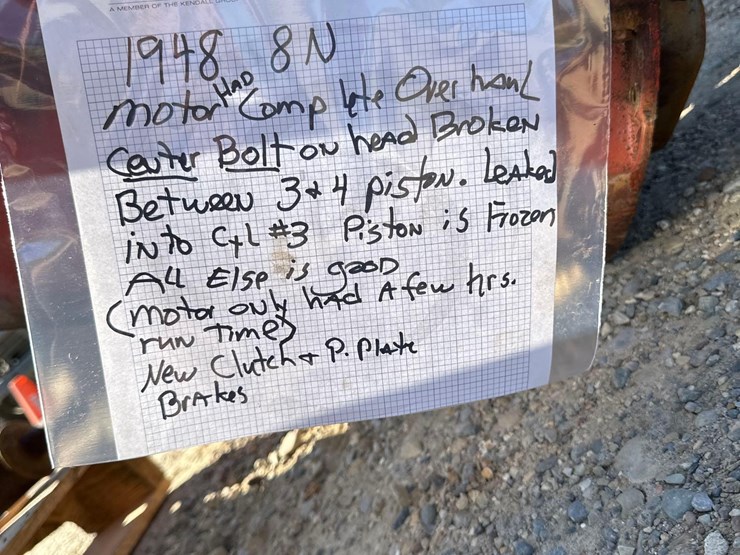 A MEMBER OF THE KENDALL
1948 8N
motor HAD Complete Over haul
Center Bolt on head Broken
Between 3 + 4 piston. Leaked
into Cyl #3 Piston is Frozen
All Else is good
(motor only had A few hrs.
run Time)
New Clutch + P. Plate
Brakes